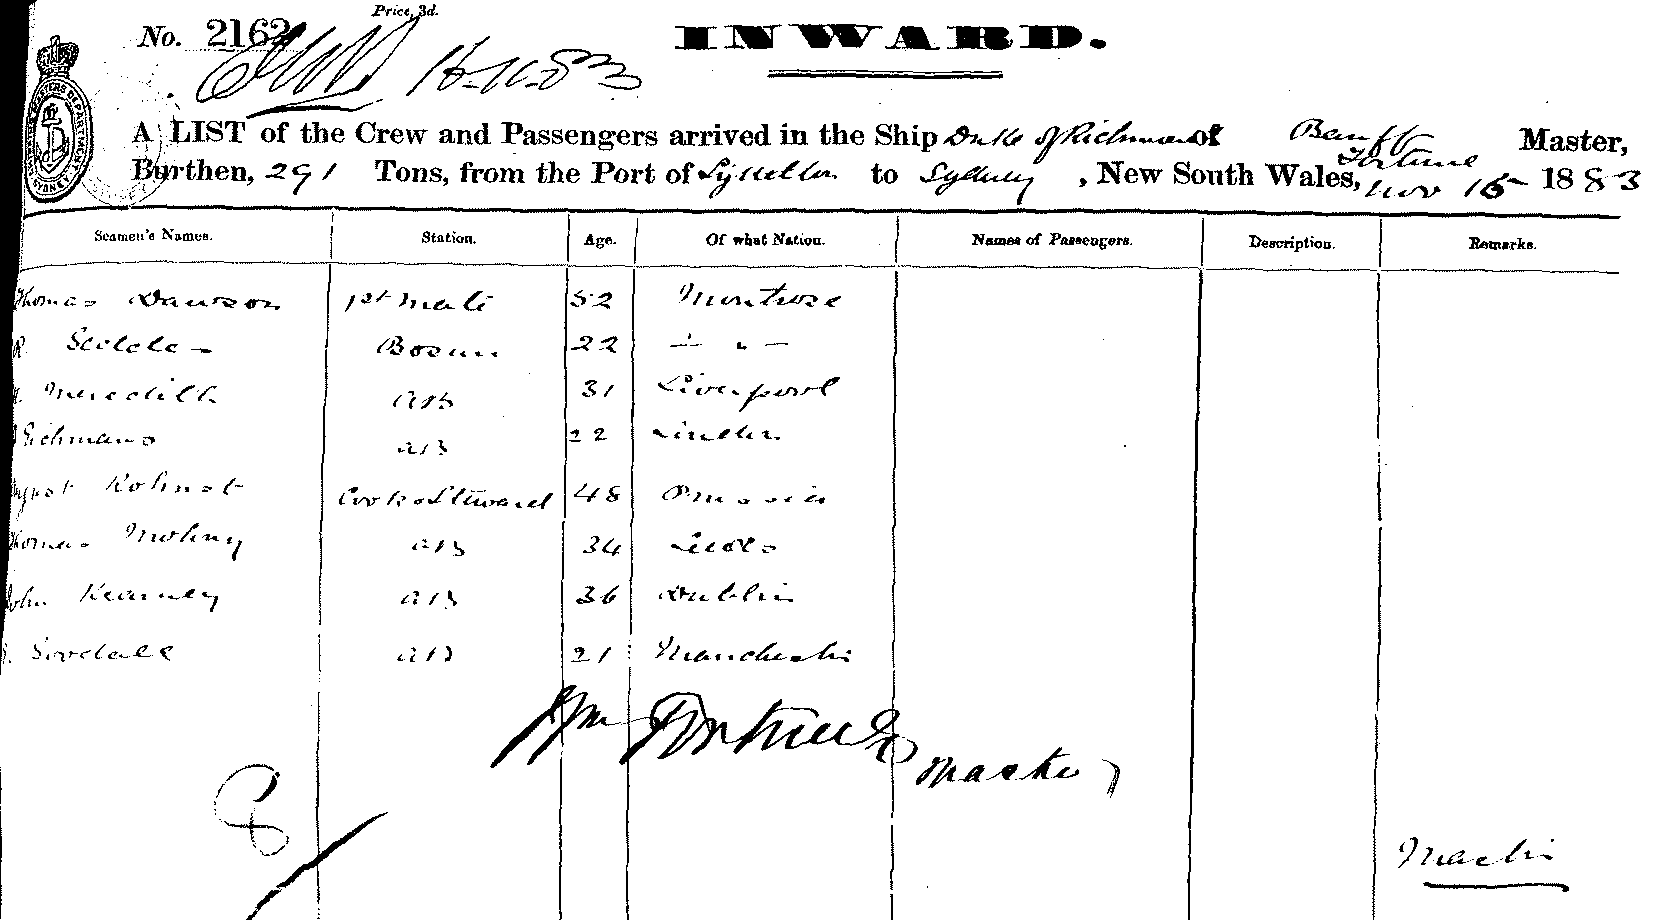 Price, 3d.
No. 2162
INWARD.
16-11-83
A LIST of the Crew and Passengers arrived in the Ship Duke of Richmond of Banff Master,
Fortune
Burthen, 291 Tons, from the Port of Lyttelton to Sydney, New South Wales, Nov 15 1883
Seamen's Names. Station. Age. Of what Nation. Names of Passengers. Description. Remarks.
Thomas Dawson 1st Mate 52 Montrose
R. Bosun 22 — " —
Meredith AB 31 Liverpool
Richmans AB 22 London
August Cook & Steward 48 Prussia
Thomas Molony AB 34 Leeds
John Kearney AB 36 Dublin
AB 21 Manchester
Wm Fortune
Master
8
Master